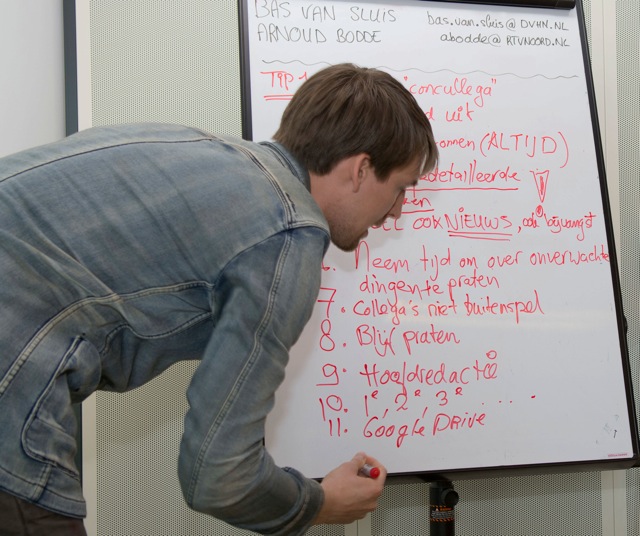 BAS VAN SLUIS bas.van.sluis@DVHN.NL
ARNOUD BODDE abodde@RTVNOORD.NL
TIP 1 "concullega"
uit
(ALTIJD)
OOK NIEUWS, bijvangst
6. Neem tijd om over onverwachte
dingen te praten
7. Collega's niet buitenspel
8. Blijf praten
9. Hoofdredactie
10. 1e, 2e, 3e .....
11. Google Drive